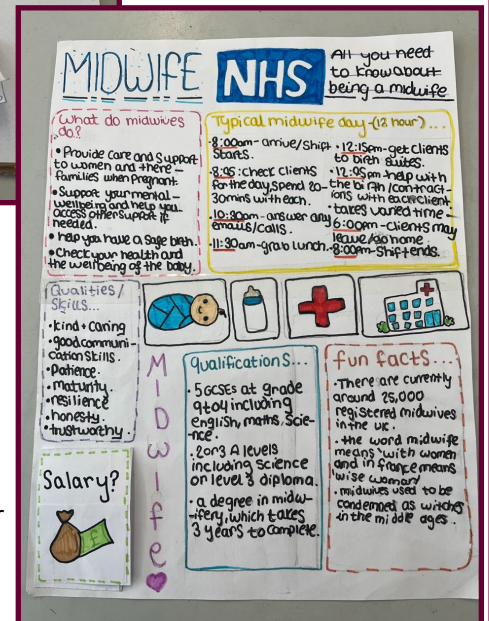 MIDWIFE
NHS
All you need
to know about
being a midwife
What do midwives
do?
• Provide care and support
to women and there
families when pregnant.
• Support your mental
wellbeing and help you
access other support if
needed.
• help you have a safe birth.
• Check your health and
the wellbeing of the baby.
Typical midwife day-(12 hour)...
• 8:00am- arrive/shift
starts.
• 8:05: check clients
for the day, spend 20-
30mins with each.
• 10:30am- answer any
emails/calls.
• 11:30am-grab lunch.
• 12:15pm-get clients
to birth suites.
• 12:05pm-help with
the birth/contract-
ions with each client.
• takes varied time-
6:00pm-clients may
leave/go home.
• 8:00pm-Shift ends.
Qualities/
Skills...
• kind + caring
• good communi-
cation skills.
• Patience.
• maturity.
• resilience
• honesty.
• trustworthy.
Midwife
qualifications...
• 5 GCSEs at grade
9 to 4 including
english, maths, Scie-
nce.
• 2 or 3 A levels
including science
or level 3 diploma.
• a degree in midw-
ifery, which takes
3 years to complete.
fun facts...
• There are currently
around 25,000
registered midwives
in the uk.
• the word midwife
means 'with women'
and in france means
'wise woman'
• midwives used to be
condemned as witches
in the middle ages.
Salary?
£
r